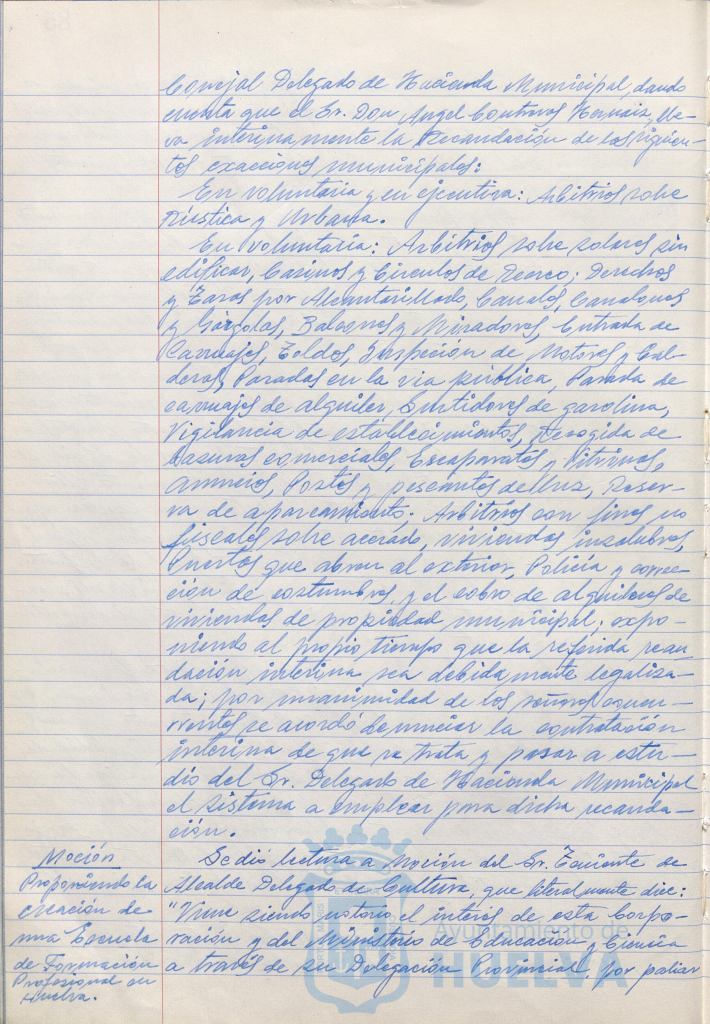 Concejal Delegado de Hacienda Municipal, dando
cuenta que el Sr. Don Angel Contreras lle-
va interinamente la Recaudación de las siguien-
tes exacciones municipales:
En voluntaria y en ejecutiva: Arbitrios sobre
Rústica y Urbana.
En voluntaria: Arbitrios sobre solares sin
edificar, Casinos y Circulos de Recreo; Derechos
y Tasas por Alcantarillado, Canales, Canalones
y Gárgolas, Balcones y Miradores, Entrada de
Carruajes, Toldos, Inspección de Motores y Cal-
deras, Paradas en la via pública, Parada de
carruajes de alquiler, Surtidores de gasolina,
Vigilancia de establecimientos, Recogida de
basuras comerciales, Escaparates y Vitrinas,
anuncios, Postes y de luz, Reser-
va de aparcamiento. Arbitrios con fines no
fiscales sobre acerado, viviendas insalubres,
Puertas que abren al exterior, Policía y correc-
ción de costumbres, y el cobro de alquileres de
viviendas de propiedad municipal; expo-
niendo al propio tiempo que la referida recau-
dación interina sea debidamente legaliza-
da; por unanimidad de los señores concu-
rrentes se acordó denunciar la contratación
interina de que se trata y pasar a estu-
dio del Sr. Delegado de Hacienda Municipal
el sistema a emplear para dicha recauda-
ción.
Moción
Proponiendo la
creación de
una Escuela
de Formación
Profesional en
Huelva.
Se dió lectura a Moción del Sr. Teniente de
Alcalde Delegado de Cultura, que literalmente dice:
"Viene siendo notorio el interés de esta Corpo-
ración y del Ministerio de Educación y Ciencia
a través de su Delegación Provincial, por paliar
Ayuntamiento de
HUELVA